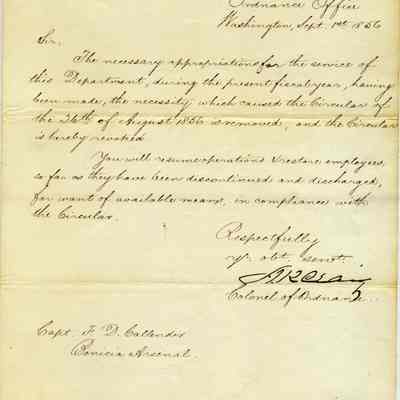 Ordnance Office
Washington, Sept. 1st 1856
Sir,
The necessary appropriations for the service of
this Department, during the present fiscal year, having
been made, the necessity which caused the Circular of
the 26th of August 1856 is removed, and the Circular
is hereby revoked
You will resume operations & restore employees,
so far as they have been discontinued and discharged,
for want of available means, in compliance with
the Circular.
Respectfully
yr. obt. servt.
H K Craig
Colonel of Ordnance
Capt. F. D. Callender
Benicia Arsenal.